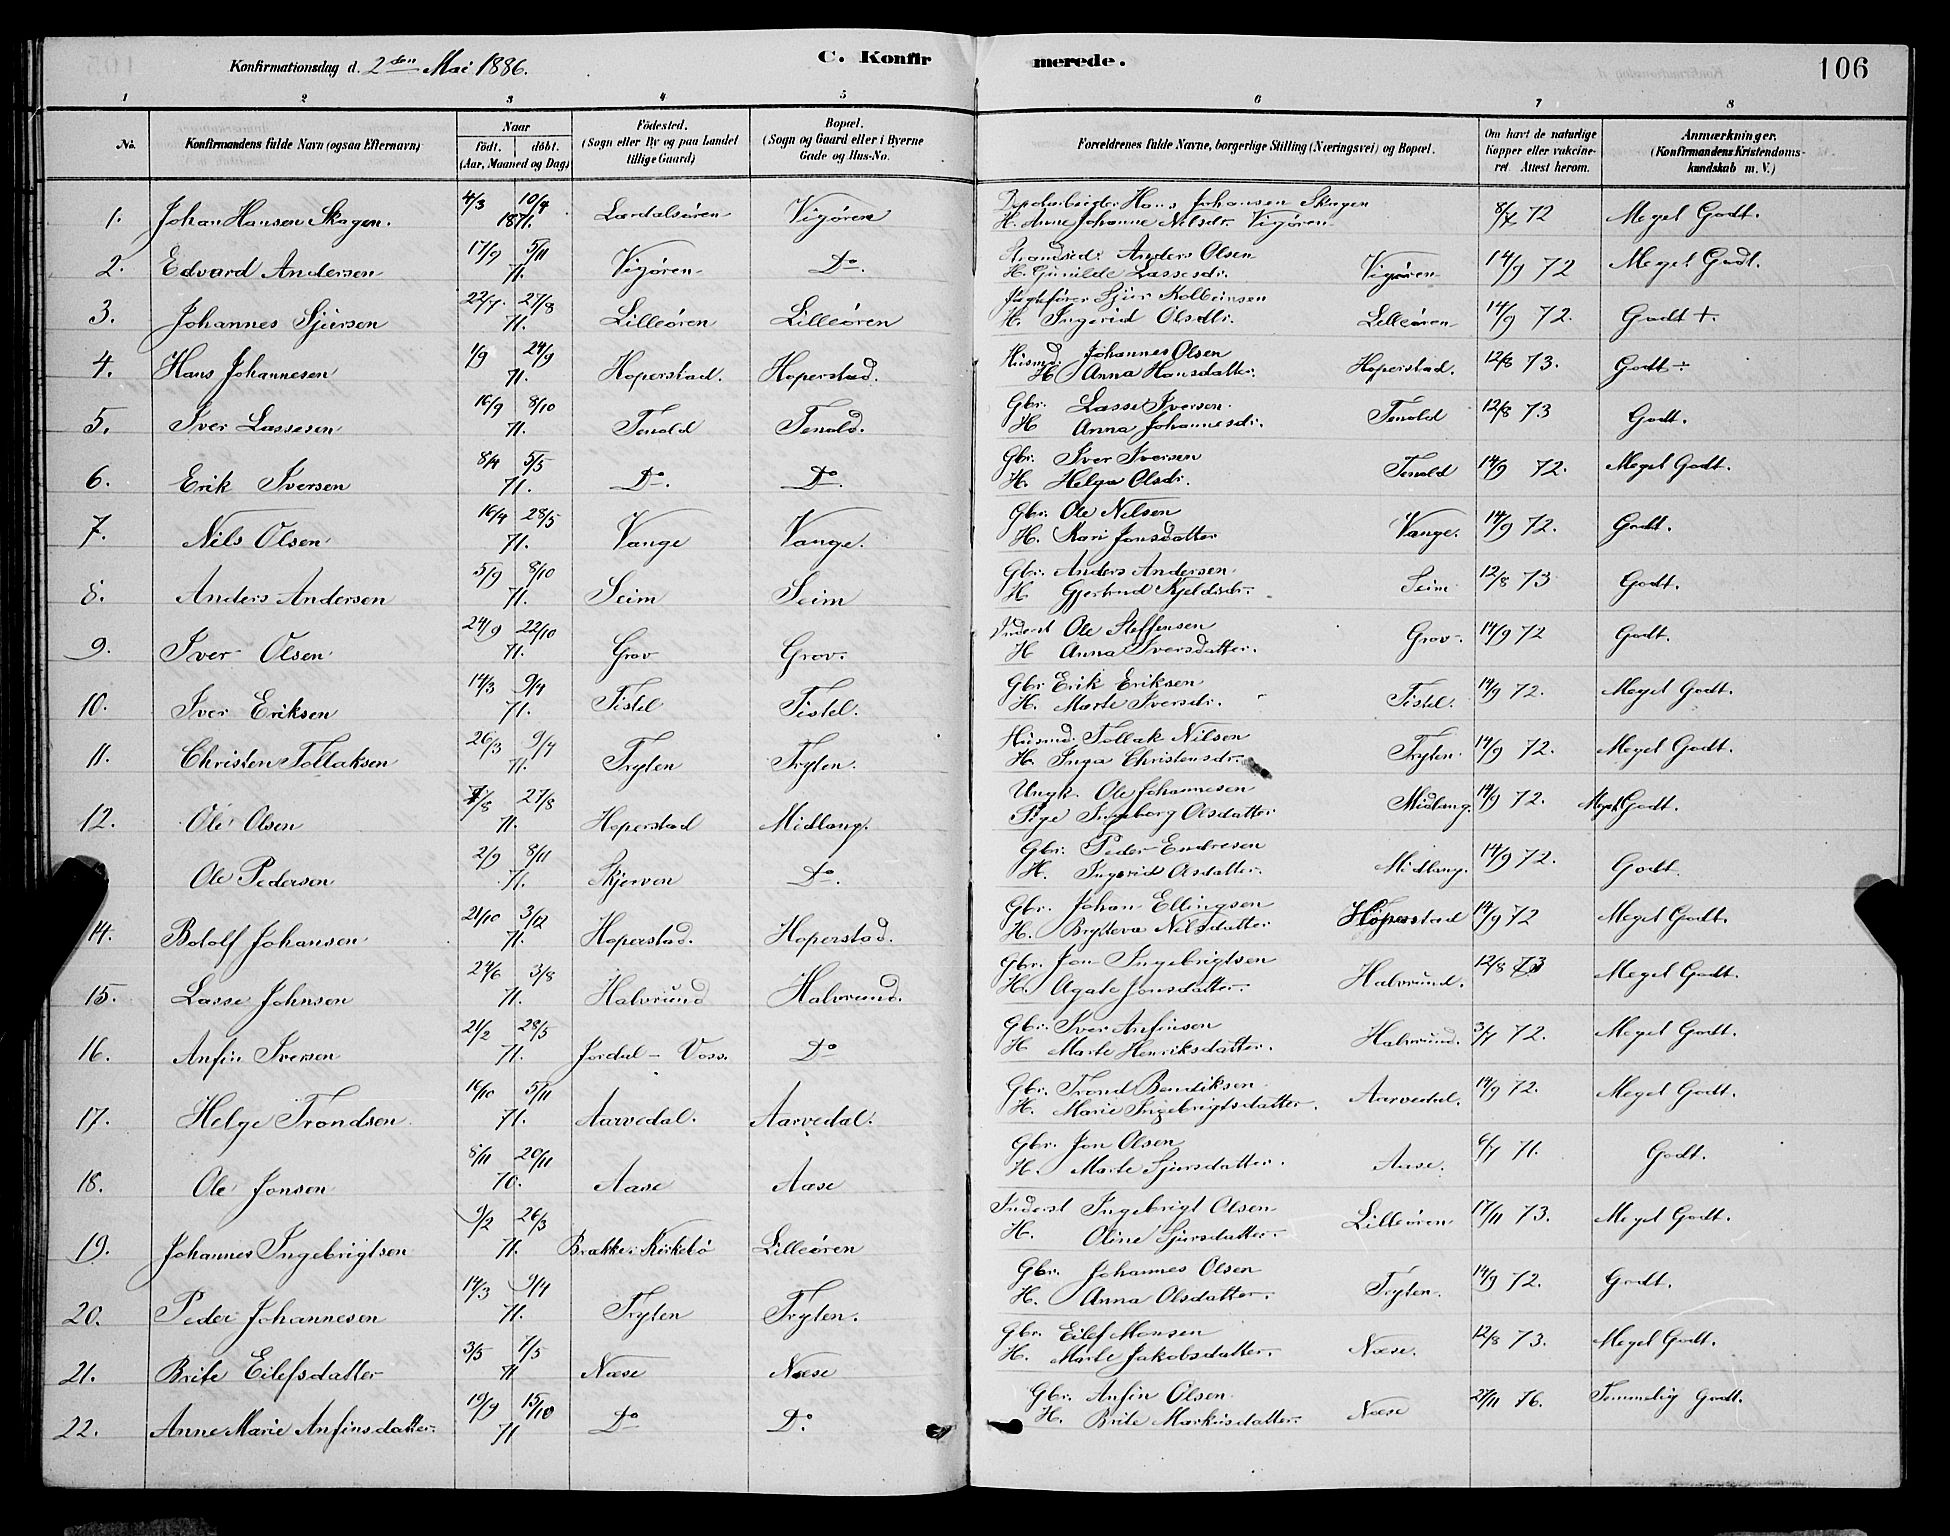 Konfirmationsdag d. 2den Mai 1886.
C. Konfir
merede.
106
1 2 3 4 5 6 7 8
No.
Konfirmandens fulde Navn (ogsaa Efternavn)
Naar
födt. döbt.
(Aar, Maaned og Dag)
Födested.
(Sogn eller By og paa Landet
tillige Gaard)
Bopæl.
(Sogn og Gaard eller i Byerne
Gade og Hus-No.
Forældrenes fulde Navne, borgerlige Stilling (Næringsvei) og Bopæl.
Om havt de naturlige
Kopper eller vakcine-
ret Attest herom.
Anmærkninger.
(Konfirmandens Kristendoms-
kundskab m. V.)
1. Johan Hansen Skagen. 4/3 10/4 1871. Lærdalsören Vigören Hans Johansen Skagen
H. Anne Johanne Nilsdr. Vigören 72 Meget Godt.
2. Edvard Andersen 17/9 5/11 71. Vigören Do. Strandsid. Anders Olsen
H. Gunilde Lassesdr. Vigören 14/9 72 Meget Godt.
3. Johannes Sjursen 22/7. 27/8 71. Lilleören Lilleören Jagtförer Sjur Kolbeinsen
H. Ingerid Olsdtr. Lilleören 14/9 72. Godt +.
4. Hans Johannesen 1/9 24/9 71. Hoperstad. Hoperstad. Husmd. Johannes Olsen
H. Anna Hansdatter. Hoperstad. 12/8 73. Godt ÷
5. Iver Lassesen 16/9 8/10 71. Tenold Tenold. Gbr. Lasse Iversen.
H Anna Johannesdr. Tenold 12/8 73 Godt.
6. Erik Iversen 8/4 5/5 71. Do. Do. Gbr. Iver Iversen
H. Helga Olsdr. Tenold 14/9 72. Meget Godt.
7. Nils Olsen 16/4 28/5 71. Vange Vange. Gbr. Ole Nilsen
H. Kari Jonsdatter Vange. 14/9 72. Godt.
8. Anders Andersen 5/9 8/10 71. Seim Seim Gbr. Anders Andersen.
H Gjertrud Kjeldsdr. Seim 12/8 73 Godt.
9. Iver Olsen 24/9 22/10 71. Grov Grov. Inderst Ole Steffensen
H Anna Iversdatter. Grov. 14/9 72 Godt.
10. Iver Eriksen 14/3 9/4 71. Tistel Tistel. Gbr Erik Eriksen
H. Marte Iversdr. Tistel. 14/9 72. Meget Godt.
11. Christen Tollaksen 26/3 9/4 71. Tryten Tryten. Husmd. Tollak Nilsen
H. Inga Christensdr. Tryten 14/9 72. Meget Godt.
12. Ole Olsen 27/8 71. Hoperstad Midlang. Ungk. Ole Johannesen
Pige Ingeborg Olsdatter Midlang. 14/9 72. Meget Godt.
Ole Pedersen 2/9 8/11 71. Skjerven Do. Gbr. Peder Endresen
H. Ingerid Olsdatter. Midlang. 14/9 72. Godt.
14. Botolf Johansen 21/10 3/12 71. Hoperstad. Hoperstad. Gbr. Johan Ellingsen
H. Bryteva Nilsdatter Hoperstad 14/9 72 Meget Godt.
15. Lasse Johnsen 24/6 3/8 71. Halvrund Halvrund. Gbr. Jon Ingebrigtsen
H. Agate Jonsdatter. Halvrund. 12/8 73 Meget Godt.
16. Anfin Iversen 21/2 28/5 71. Jordal - Voss. Do Gbr. Iver Anfinsen
H. Marte Henriksdatter. Halvrund. 3/7 72. Meget Godt.
17. Helge Trondsen 16/10 5/11 71. Aarvedal. Aarvedal. Gbr. Trond Bendiksen
H. Marie Ingebrigtsdatter. Aarvedal. 14/9 72. Meget Godt.
18. Ole Jonsen 8/11 20/11 70. Aase Aase Gbr. Jon Olsen
H. Marte Sjursdatter. Aase. 6/7 71. Godt.
19. Johannes Ingebrigtsen 9/2 26/3 71. Brække, Kirkebö Lilleören Inderst Ingebrigt Olsen
H. Oline Sjursdatter. Lilleören 17/11 73. Meget Godt.
20. Peder Johannesen 14/3 9/4 71. Tryten Tryten. Gbr. Johannes Olsen
H. Anna Olsdatter. Tryten. 14/9 72. Godt.
21. Brite Eilefsdatter 3/5 7/5 71 Næse Næse Gbr. Eilef Monsen
H. Marte Jakobsdatter. Næse. 12/8 73. Meget Godt.
22. Anne Marie Anfinsdatter. 19/9 15/10 71 Do Do. Gbr. Anfin Olsen.
H. Brite Markusdatter. Næse 27/11 76. Temmelig Godt.